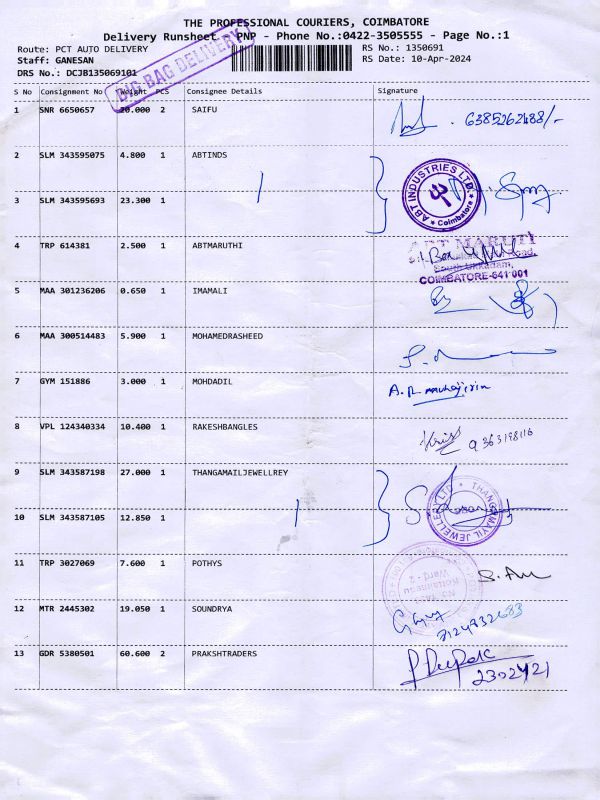 THE PROFESSIONAL COURIERS, COIMBATORE
Delivery Runsheet - PNP - Phone No.:0422-3505555 - Page No.:1
Route: PCT AUTO DELIVERY
RS No.: 1350691
Staff: GANESAN
RS Date: 10-Apr-2024
DRS No.: DCJB135069101
BIG BAG DELIVERY
S No Consignment No Weight PCS Consignee Details Signature
1 SNR 6650657 20.000 2 SAIFU
2 SLM 343595075 4.800 1 ABTINDS
ABT INDUSTRIES LTD. Coimbatore
3 SLM 343595693 23.300 1
4 TRP 614381 2.500 1 ABTMARUTHI
ABT MARUTI
COIMBATORE-641 001
5 MAA 301236206 0.650 1 IMAMALI
6 MAA 300514483 5.900 1 MOHAMEDRASHEED
7 GYM 151886 3.000 1 MOHDADIL
8 VPL 124340334 10.400 1 RAKESHBANGLES
9 SLM 343587198 27.000 1 THANGAMAILJEWELLREY
THANGAMAYIL JEWELLERY LTD
10 SLM 343587105 12.850 1
11 TRP 3027069 7.600 1 POTHYS
12 MTR 2445302 19.050 1 SOUNDRYA
13 GDR 5380501 60.600 2 PRAKSHTRADERS
2302421